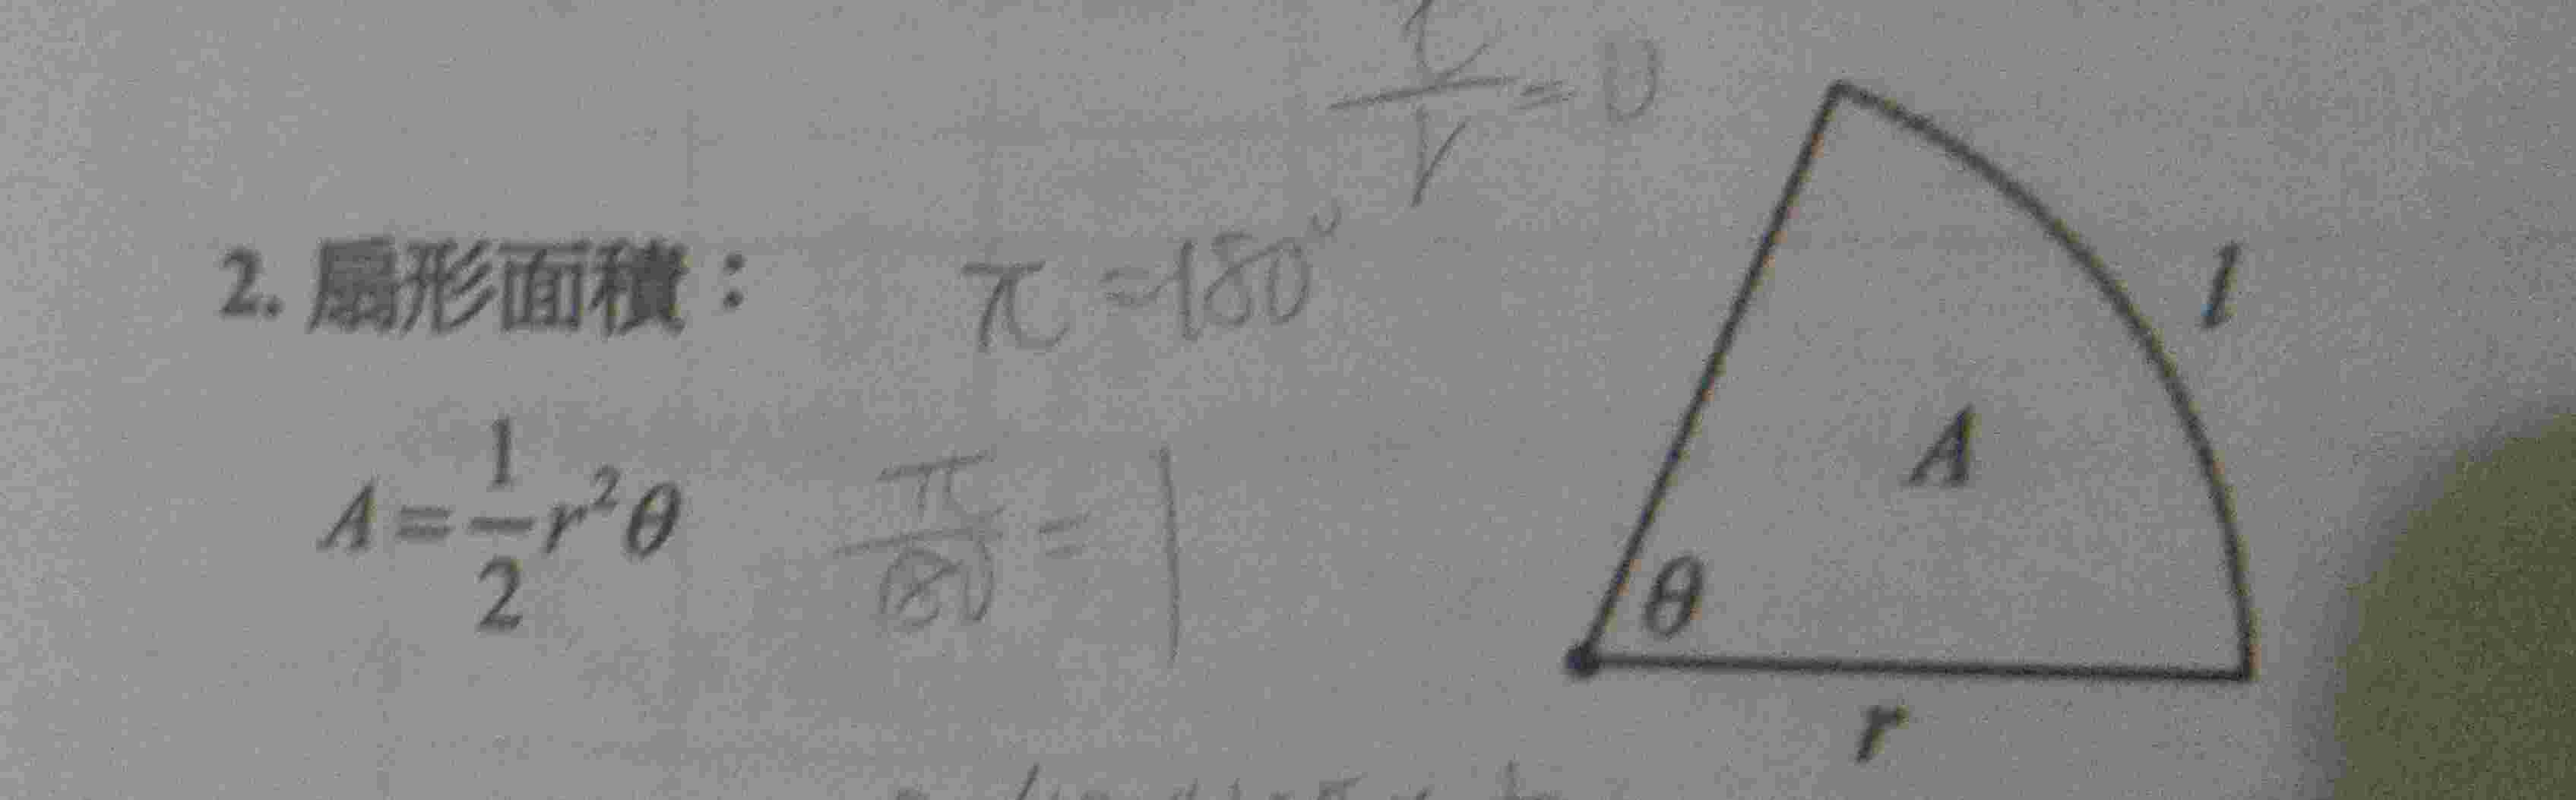 2. 扇形面積：
π = 180°
A = 1/2 r²θ
π/180 = 1
l
A
θ
r